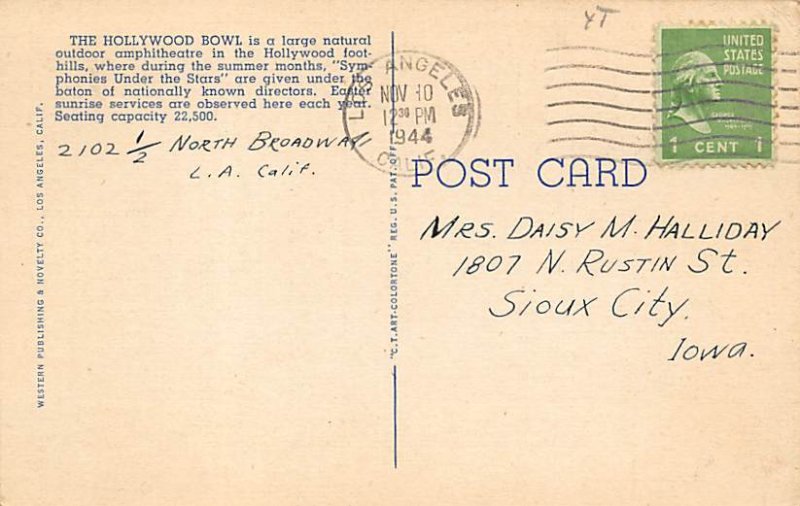 4T
THE HOLLYWOOD BOWL is a large natural
outdoor amphitheatre in the Hollywood foot-
hills, where during the summer months, "Sym-
phonies Under the Stars" are given under the
baton of nationally known directors. Easter
sunrise services are observed here each year.
Seating capacity 22,500.
2102 1/2 NORTH BROADWAY
L.A. Calif.
WESTERN PUBLISHING & NOVELTY CO., LOS ANGELES, CALIF.
"C.T. ART-COLORTONE" REG. U.S. PAT. OFF.
LOS ANGELES
NOV 10
12 30 PM
1944
CALIF.
UNITED
STATES
POSTAGE
1 CENT 1
POST CARD
MRS. DAISY M. HALLIDAY
1807 N. RUSTIN St.
Sioux City,
Iowa.